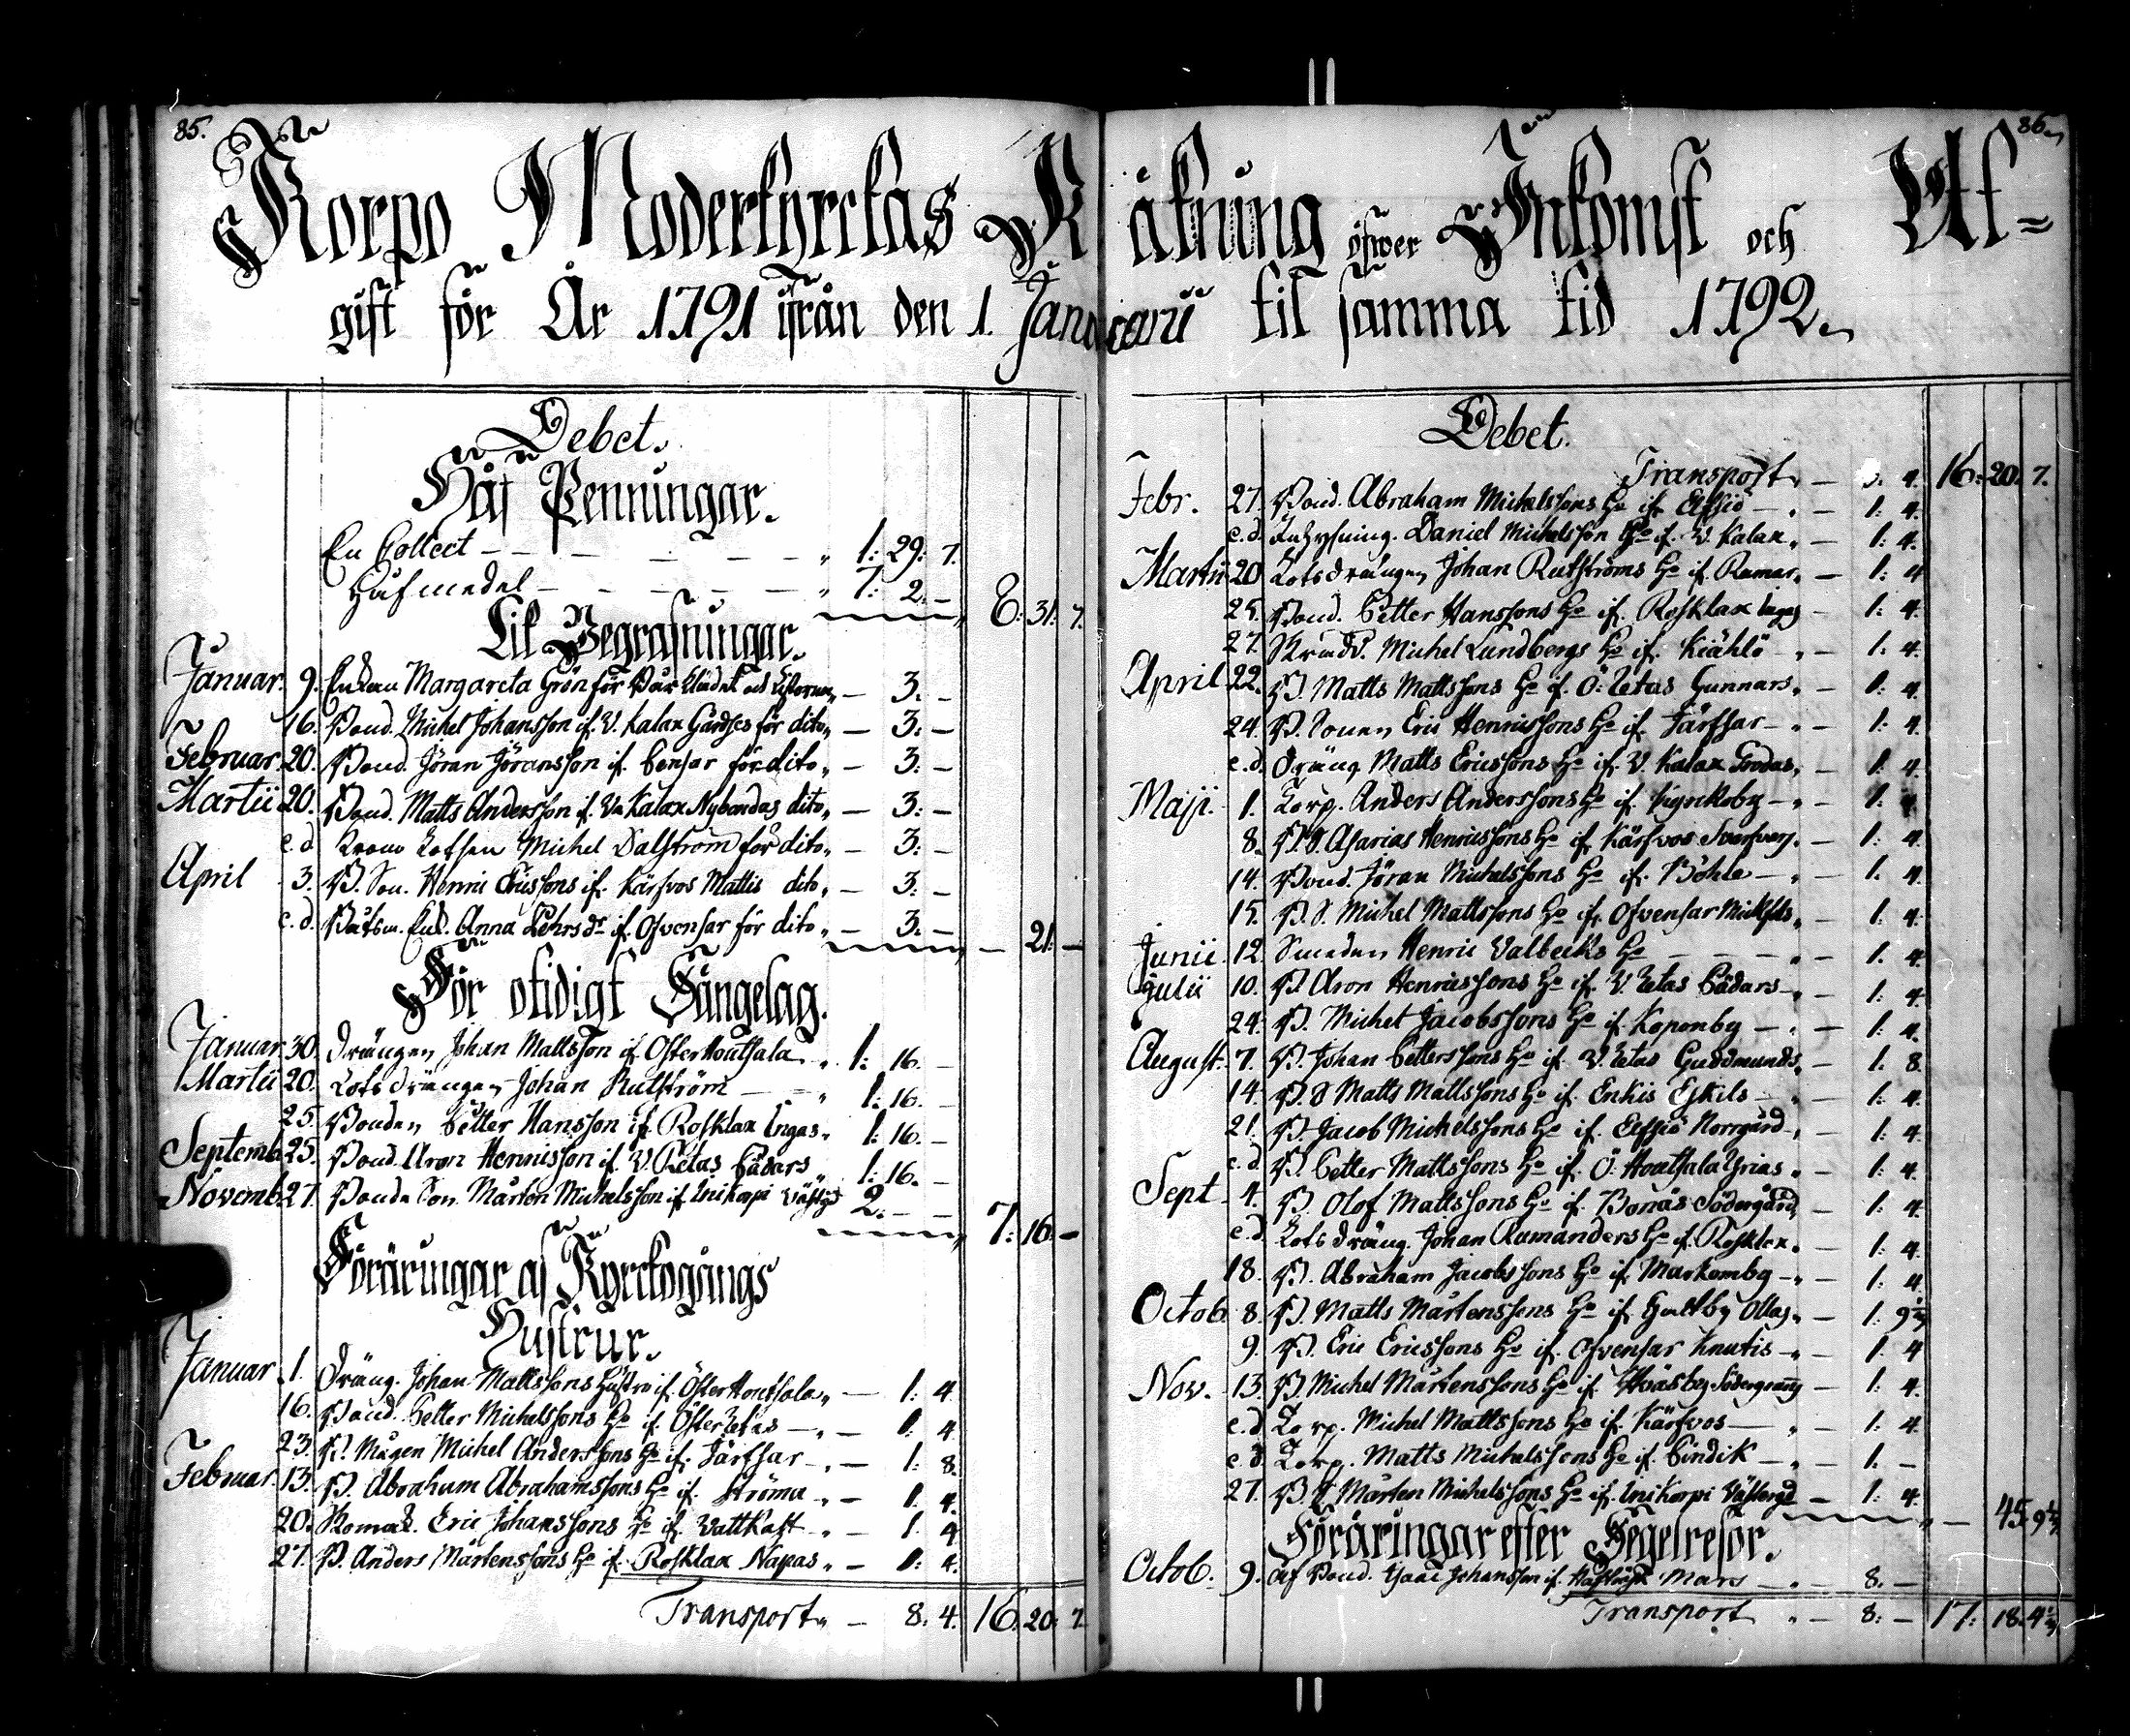 85.
Korpo Moderkyrckas R
gift för År 1791 ifrån den 1. Janu
Debet.
Håf Penningar.
En Collect - - - - - " 1: 29: 7.
Hufmedel - - - - - " 7: 2. - 8: 31: 7.
Til Begrafningar.
Januar. 9. Enkan Margareta Grön för Bår Klädet " - 3. -
16. Bond. Michel Johansson if. V. Kalax Gårdses för dito " - 3: -
Februar. 20. Bond. Jöran Jöransson if. Bensar för dito " - 3: -
Martii 20. Bond. Matts Andersson if. Va Kalax Nybondas dito " - 3: -
e. d. Krono Lotsen Michel Dalström för dito " - 3: -
April 3. B. Son. Henric Ericssons if. Kärfvos Mattis dito " - 3: -
e. d. Båtsm. Enk. Anna Pehrs dr if. Ofvensar för dito " - 3. - - 21: -
För otidigt Sängelag.
Januar 30. Drängen Johan Mattsson if. Öster Houtsala " 1: 16. -
Martii 20. Lots drängen Johan Rutström - - " 1: 16. -
25. Bonden Petter Hansson if. Rosklax Ingas " 1: 16. -
Septemb. 25. Bond. Aron Henricsson if. V. Retas Bådars " 1: 16. -
Novemb. 27. Bonde Son. Mårten Michelsson if. Wikorpi Västerg. 2. - - 7: 16. -
Föräringar af Kyrckogångs
Hustrur.
Januar. 1. Dräng. Johan Mattssons Hustro if. Öster Houtsala " - 1: 4.
16. Bond. Petter Michelssons Ho if. Öster Retas - " - 1: 4
23. B. Mågen Michel Anderssons Ho if. Järfsar - " - 1: 8.
Februar. 13. B. Abraham Abrahamssons Ho if. Ströma " - 1. 4.
20. Skomak. Eric Johanssons Ho if. Wattkast " - 1. 4
27. B. Anders Mårtenssons Ho if. Rosklax Napas " - 1: 4.
Transport " - 8. 4. 16. 20. 7.
86.
äkning öfwer Inkomst och Ut=
arii til samma tid 1792.
Debet.
Transport " - 4. 16: 20. 7.
Febr. 27. Bond. Abraham Michelssons Ho if. Elfsiö - " - 1: 4.
e. d. Inhysning. Daniel Michelsson Ho if. V. Kalax " - 1: 4.
Martii 20 Lots drängen Johan Rutströms Ho if. Ramar " - 1: 4
25. Bond. Petter Hanssons Ho if. Rosklax Ingas - 1: 4.
27. Michel Lundbergs Ho if. Kiählö - " - 1. 4.
April 22. B. Matts Mattssons Ho if. Ö: Retas Gunnars " - 1: 4.
24. B. Sonen Eric Henricssons Ho if. Järfsar - " - 1: 4.
e. d. Dräng Matts Ericssons Ho if. V. Kalax " - 1: 4.
Maji. 1. Torp. Anders Anderssons Ho if. - " - 1:
8. B. S. Asarias Henricssons Ho if. Kärfvos " - 1: 4.
14. Bond. Jöran Michelssons Ho if. Böhle - " - 1. 4.
15. B. S. Michel Mattssons Ho if. Ofvensar Mickels " - 1: 4.
Junii. 12. Smeden Henric Valbecks Ho - - - " - 1. 4.
Julii 10. B. Aron Henricssons Ho if. V. Retas Bådars - " - 1: 4.
24. B. Michel Jacobssons Ho if. Koponby - " - 1: 4.
August. 7. B. Johan Petterssons Ho if. V. Retas Guddmunds " - 1. 8.
14. B. S Matts Mattssons Ho if. Enkis Eskils - " - 1: 4.
21. B. Jacob Michelssons Ho if. Elfsiö Norrgård - " - 1: 4.
e. d. B. Petter Mattssons Ho if. Ö. Houtsala Grias " - 1: 4.
Sept. 4. B. Olof Mattssons Ho if. Bonäs Södergård " - 1: 4.
e. d. Lots dräng. Johan Ramanders Ho if. Rosklax " - 1: 4.
18. B. Abraham Jacobssons Ho if. Markomby - " - 1: 4.
Octob. 8. B. Matts Mårtenssons Ho if. Hultby Ollas " - 1. 9 1/3
9. B. Eric Ericssons Ho if. Ofvensar Knutis - " - 1. 4
Nov. 13. B. Michel Mårtenssons Ho if. - 1: 4.
e. d Torp. Michel Mattssons Ho if. Kärfvos - " - 1: 4.
e d Torp. Matts Michelssons Ho if. Bindik - " - 1. -
27. B. S Mårten Michelssons Ho if. Wikorpi Västergd - 1: 4. - 45. 9 1/3
Föräringar efter Segelresor.
Octob. 9. Af Bond. Isaac Johansson if. Mars - " - 8. -
Transport " - 8: - 17: 18. 4 1/3